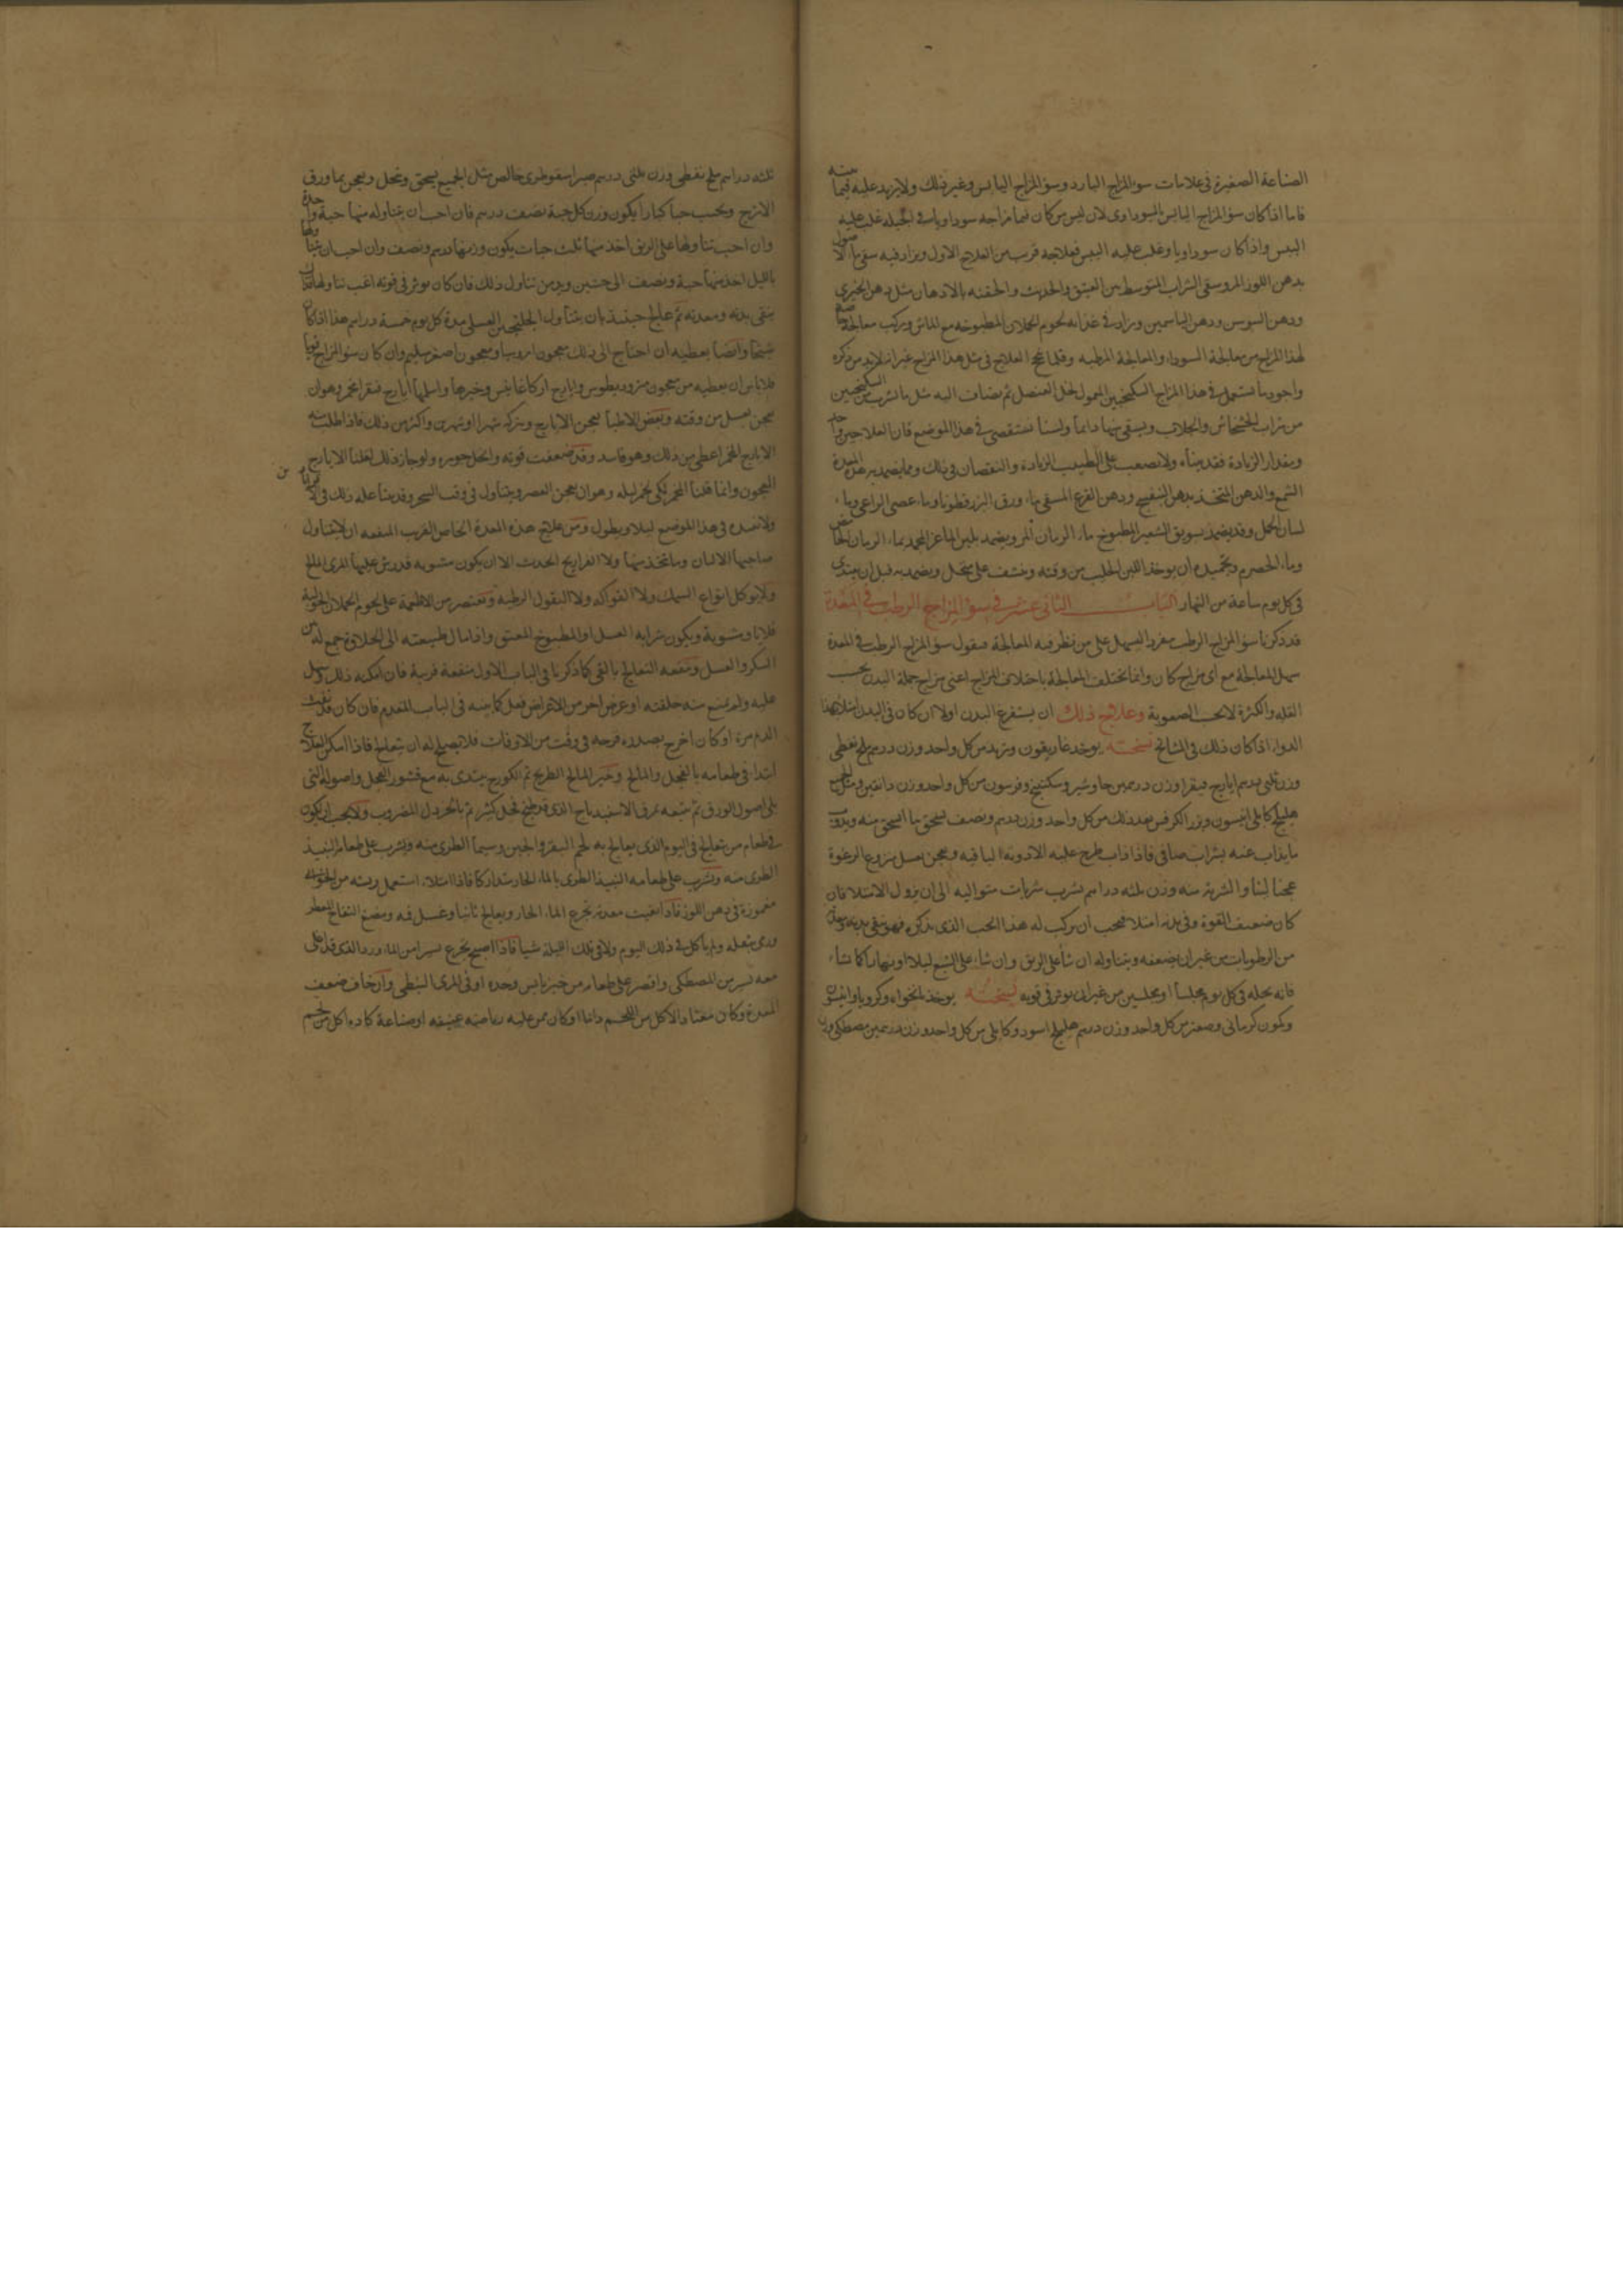 الصناعة الصغيرة فى علامات سوء المزاج البارد وسوء المزاج اليابس وغير ذلك ولا يزيد عليه فيما بينه
فاما اذا كان سوء المزاج اليابس السوداوى لان ليس من كان فيما مزاجه سوداويا فى الجبلة غلب عليه
اليبس واذا كان سوداويا وغلب عليه اليبس فعلاجه قرب من العلاج الاول ويزاد فيه سقى ماء الاصول
بدهن اللوز المر وسقى الشراب المتوسط بين العتيق والحديث والحقنه بالادهان مثل دهن الخيرى
ودهن السوسن ودهن الياسمين ويزاد فى غذايه لحوم الحملان المطبوخه مع الماش ويركب معالجة
لهذا المزاج من معالجة السوداء والمعالجة المرطبه وقلما نجح العلاج فى مثل هذا المزاج غير انه لا بد من ذكره
واجود ما تستعمل فى هذا المزاج السكنجبين المعمول بخل العنصل ثم يضاف اليه مثل ما تشرب من السكنجبين
من شراب الخشخاش والجلاب ويسقى منها دايما ولسنا نستقصى فى هذا الموضع فان العلاجين واحد
ومقدار الزيادة فقد بيناه ولا يصعب على الطبيب الزيادة والنقصان فى ذلك ومما يضمد به هذه المعدة
الشمع والدهن المتخذ بدهن البنفسج ودهن القرع المسقى ماء ورق البزرقطونا وماء عصى الراعى وماء
لسان الحمل وقد يضمد بسويق الشعير المطبوخ ماء الرمان المر ويضمد بلبن الماعز المجمد بماء الرمان الحامض
وماء الحصرم وتجميده ان يوخذ اللبن الحليب من وقته وينشف على منخل ويضمد به قبل ان يبتدى
فى كل يوم ساعة من النهار الباب الثانى عشر فى سوء المزاج الرطب فى المعدة
قد ذكرنا سوء المزاج الرطب مفردا ليسهل على من نظر فيه المعالجة فنقول سوء المزاج الرطب فى المعدة
سهل المعالجة مع اى مزاج كان وانما تختلف المعالجة باختلاف المزاج اعنى مزاج جملة البدن بحسب
القله والكثرة لا بحسب الصعوبة وعلاج ذلك ان يستفرغ البدن اولا ان كان فى البدن امتلاء بهذا
الدواء اذا كان ذلك فى المشايخ نسخته يوخذ غاريقون وتربد من كل واحد وزن درهم ملح نفطى
وزن ثلثى درهم ايارج فيقرا وزن درهمين جاوشير وسكبينج وفرسون من كل واحد وزن دانقين ومثل الجميع
هليلج كابلى انيسون وبزر الكرفس بعد ذلك من كل واحد وزن درهم ونصف يسحق ما انسحق منه ويذوب
ما يذاب عنه بشراب صافى فاذا ذاب طرح عليه الادوية الباقيه ويعجن بعسل منزوع الرغوة
عجنا لينا والشربة منه وزن ثلثه دراهم يشرب شربات متواليه الى ان يزول الامتلاء فان
كان ضعيف القوة وفى بدنه امتلاء فيجب ان يركب له هذا الحب الذى نذكره فهو ينقى بدنه ومعدته
من الرطوبات من غير ان يضعفه ويتناوله ان شاء على الريق وان شاء على الشبع ليلا او نهارا كما شاء
فانه يحله فى كل يوم مجلسا او مجلسين من غير ان يوثر فى قوته نسخته يوخذ نانخواه وكرويا وانيسون
وكمون كرمانى وصعتر من كل واحد وزن درهم هليلج اسود وكابلى من كل واحد وزن درهمين مصطكى وزن
ثلثه دراهم ملح نفطى وزن ثلثى درهم صبر اسقوطرى خالص مثل الجميع يسحق وينخل ويعجن بماء ورق
الاترج ويحبب حبا كبارا يكون وزن كل حبة نصف درهم فان احب ان يتناوله منها حبة واحدة
وان احب تناولها على الريق اخذ منها ثلث حبات يكون وزنها درهم ونصف وان احب ان يتناولها
بالليل اخذ منها حبة ونصف الى حبتين ويدمن تناول ذلك فان كان يوثر فى قوته اغب تناولها فاذا
ينقى بدنه ومعدته ثم عالج حينئذ بان يتناول الجلنجبين العسلى مدة كل يوم خمسة دراهم هذا اذا كان
شيخا وايضا يعطيه ان احتاج الى ذلك معجون امروسيا ومعجون اصفر سليم وان كان سوء المزاج قويا
فلا باس ان يعطيه من معجون مثروديطوس وايارج اركاغانيس وغيرها واسلمها ايارج فيقرا مخمر وهو ان
يعجن بعسل من وقته وبعض الاطباء يعجن الايارج ويتركه شهرا او شهرين واكثر من ذلك فاذا طلب منه
الايارج المخمر اعطى من ذلك وهو فاسد وقد ضعفت قوته وانحل جوهره ولو جاز ذلك لقلنا الايارج
المعجون وانما قلنا المخمر لكى يخمر ليله وهو ان يعجن العصر ويتناول فى وقت السحر وقد بينا علة ذلك فى
ولا نعيده فى هذا الموضع ليلا يطول ومن علاج هذه المعدة الخاص القريب المنفعه ان لا يتناول
صاحبها الالبان وما يتخذ منها ولا الفراريج الحدث الا ان يكون مشويه قد رش عليها المرى المالح
ولا يوكل انواع السمك ولا الفواكه ولا البقول الرطبه وتقتصر من الاطعمة على لحوم الحملان الحولية
قلايا ومشوية ويكون شرابه العسل او المطبوخ المعتق واذا مال طبيعته الى الحلاوة جمع له بين
السكر والعسل ومنفعه التعالج بالقى كما ذكرنا فى الباب الاول منفعة قريبة فان امكنه ذلك وسهل
عليه ولم يمنع منه خلقته او عرض اخر من الاعراض فعل كما بينه فى الباب المتقدم فان كان قد نفث
الدم مرة او كان اخرج بصدره قرحه فى وقت من الاوقات فلا يصلح له ان يتعالج فاذا امكن العلاج
ابتدا فى طعامه بالفجل والمالح وخير المالح الطريح ثم الكورج يبتدى به مع قشور الفجل واصوله التى
يلى اصول الورق ثم يتبعه بمرق الاسفيدباج الذى قد طبخ بخل كثير ثم بالخردل المضروب ولا يجب ان يكون
فى طعام من يتعالج فى اليوم الذى يعالج به لحم البقر والجبن وسيما الطرى منه ويشرب على طعامه النبيذ
الطرى منه ويشرب على طعامه النبيذ الطرى بالماء الحار متداركا فاذا امتلاء استعمل ريشه من الخوخه
مغموزة فى دهن اللوز فاذا نقيت معدته تجرع الماء الحار ويعالج ثانيا وغسل فمه ومضغ التفاح العطر
ورمى بثفله ولم ياكل فى ذلك اليوم ولا فى تلك الليلة شيا فاذا اصبح تجرع يسيرا من الماء ورد الذى قد اغلى
معه يسير من المصطكى واقتصر على طعام من خبز يابس وحده او فى المرى النبطى وان خاف ضعف
المعدة وكان معتادا لاكل من اللحم دايما او كان ممن عليه رياضه عنيفه او صناعة كادة اكل من لحم